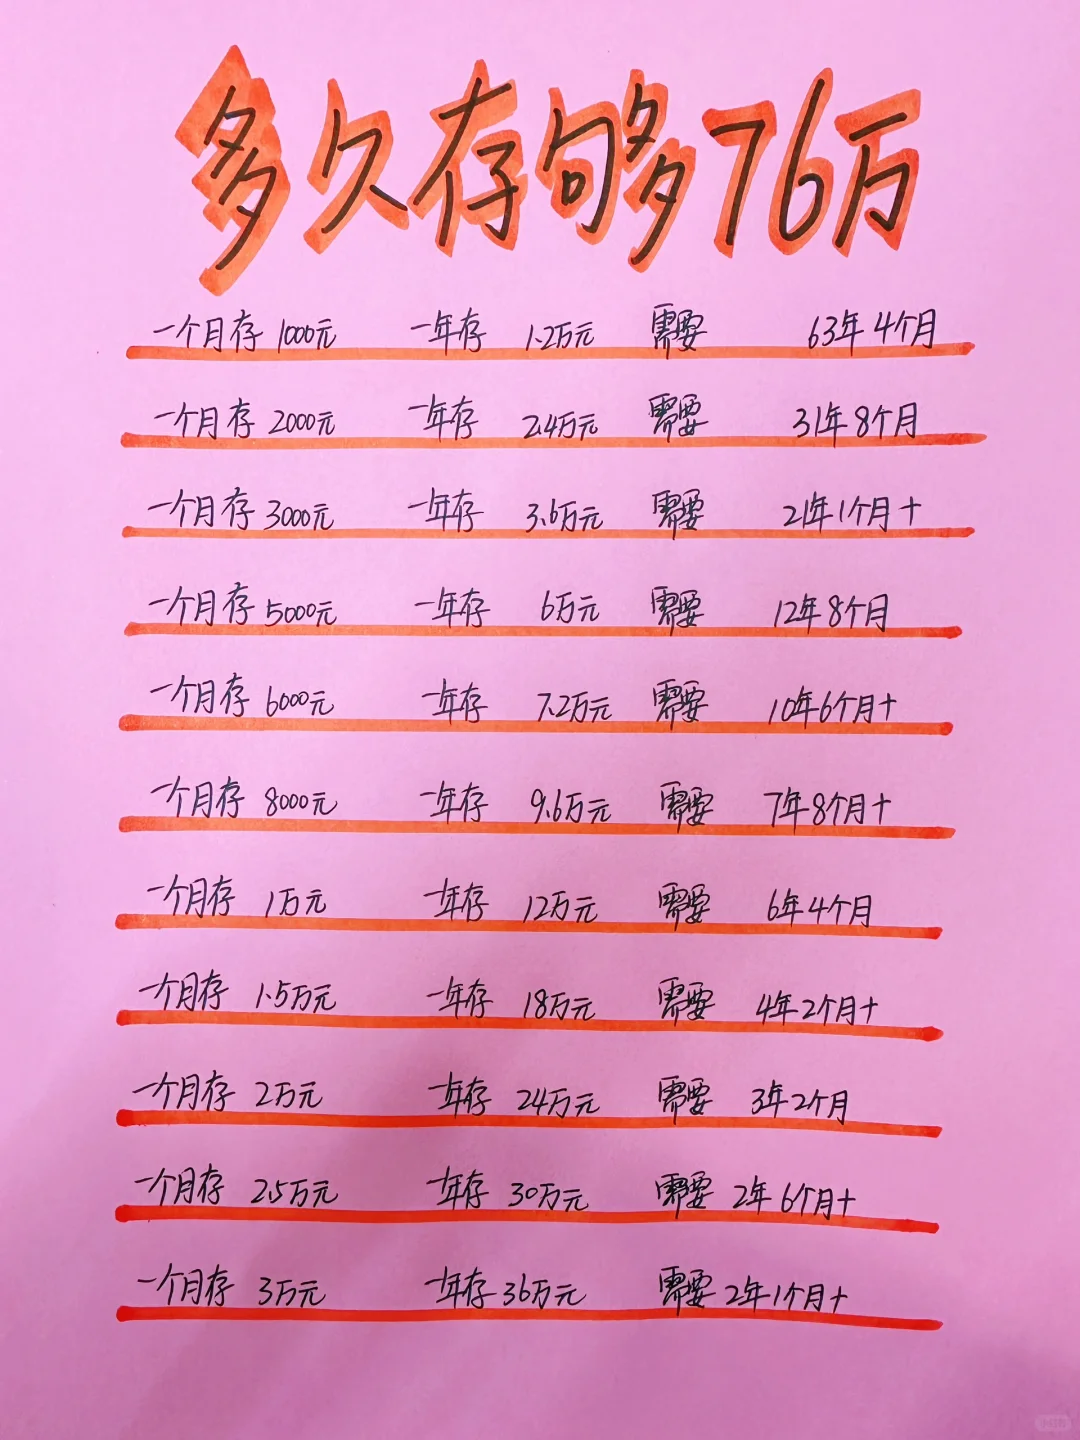 多久存够76万
一个月存 1000元 一年存 1.2万元 需要 63年4个月
一个月存 2000元 一年存 2.4万元 需要 31年8个月
一个月存 3000元 一年存 3.6万元 需要 21年1个月+
一个月存 5000元 一年存 6万元 需要 12年8个月
一个月存 6000元 一年存 7.2万元 需要 10年6个月+
一个月存 8000元 一年存 9.6万元 需要 7年8个月+
一个月存 1万元 一年存 12万元 需要 6年4个月
一个月存 1.5万元 一年存 18万元 需要 4年2个月+
一个月存 2万元 一年存 24万元 需要 3年2个月
一个月存 2.5万元 一年存 30万元 需要 2年6个月+
一个月存 3万元 一年存 36万元 需要 2年1个月+
小红书